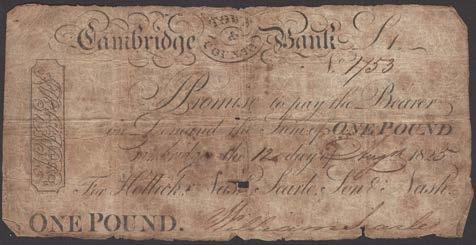 Cambridge TOWN & COUNTY Bank £1
No. 1753
I Promise to pay the Bearer
on Demand the Sum of ONE POUND
Cambridge the 12 day of Augt 1825
For Hollick, Nash, Searle, Senr & Nash.
ONE POUND. William Searle